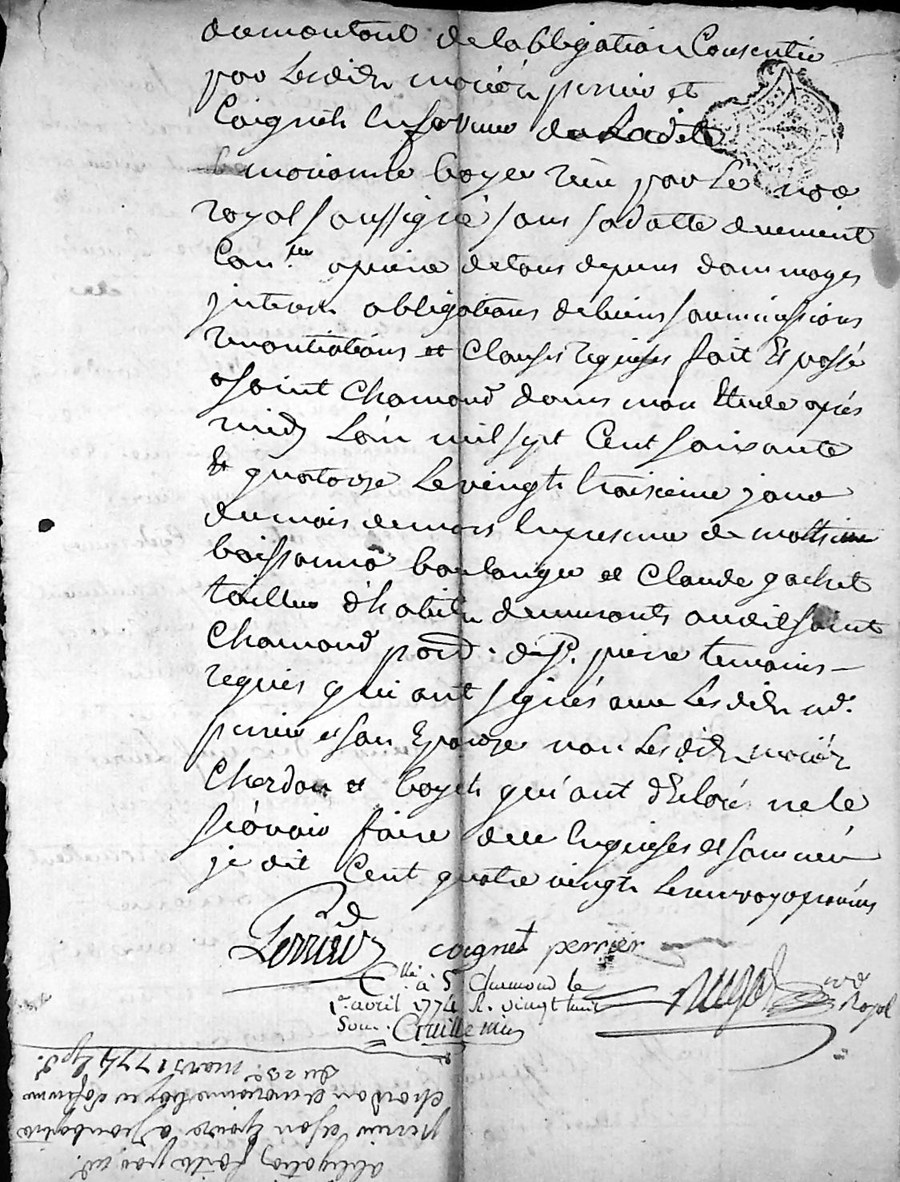 du montant de lobbligation Consentie
par lesdits mariés perrin et
Coignet En faveur de Ladite
mariamle boyer reçu par Le nre
royal soussigné sous sadatte duement
Con.lée a peine de tous depens dommages
interets obligations debiens soumissions
renontiations et Clauses requises fait Et passé
asaint Chamond dans mon Etude après
midy Lan mil sept Cent soixante
Et quatorze Le vingt troisieme jour
dumois demars En presence de
boissonna boulanger et Claude gachet
tailleur d'habits demeurants audit saint
Chamond pard. de St. pierre temoins
requis qui ont signés avec Lesdits md.
perrin et son Epouze non Lesdits mariés
Chordon et boyer qui ont déclaré ne le
sçavoir faire de ce Enquises et sommées
je dit Cent quatre vingt
Perrin coignet perrier
Cllé à St Chamond le
1er avril 1774 R. vingt huit
Sous. nre Royal
obligation faite par md.
perrin et son Epouze a jean baptiste
chordon et mariamle boyer sa femme
du 23e. mars 1774